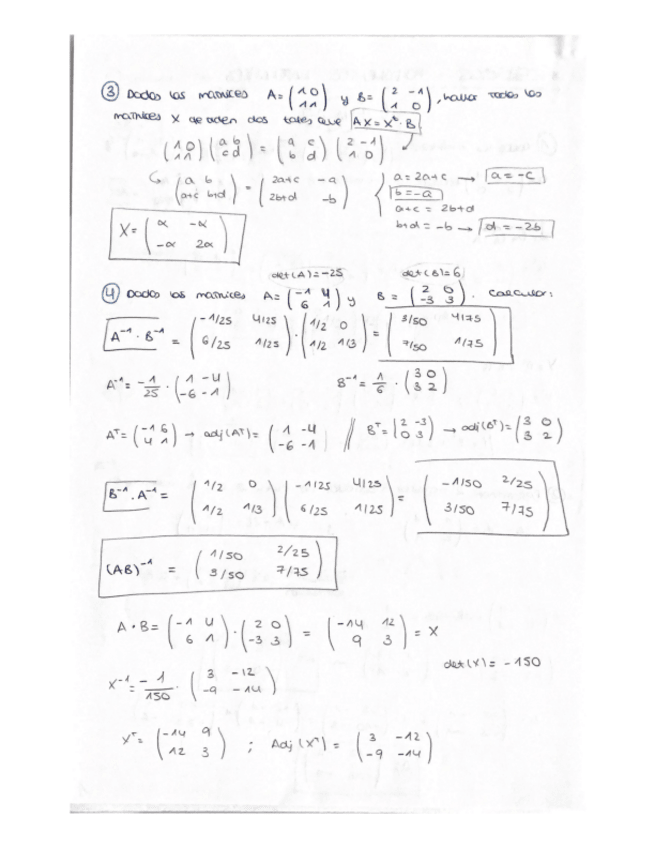 ③ Dadas las matrices A = (1 0 / 1 1) y B = (2 -1 / 1 0), hallar todas las
matrices X de orden dos tales que AX = Xᵗ · B
(1 0 / 1 1) (a b / c d) = (a c / b d) (2 -1 / 1 0)
↳ (a b / a+c b+d) = (2a+c -a / 2b+d -b)
{ a = 2a+c → a = -c
b = -a
a+c = 2b+d
b+d = -b → d = -2b
X = (α -α / -α 2α)
det(A) = -25 det(B) = 6
④ Dadas las matrices A = (-1 4 / 6 1) y B = (2 0 / -3 3). Calcular:
A⁻¹ · B⁻¹ = (-1/25 4/25 / 6/25 1/25) · (1/2 0 / 1/2 1/3) = (3/50 4/75 / 7/50 1/75)
A⁻¹ = -1/25 · (1 -4 / -6 -1) B⁻¹ = 1/6 · (3 0 / 3 2)
Aᵀ = (-1 6 / 4 1) → adj(Aᵀ) = (1 -4 / -6 -1) // Bᵀ = (2 -3 / 0 3) → adj(Bᵗ) = (3 0 / 3 2)
B⁻¹ · A⁻¹ = (1/2 0 / 1/2 1/3) (-1/25 4/25 / 6/25 1/25) = (-1/50 2/25 / 3/50 7/75)
(AB)⁻¹ = (1/50 2/25 / 3/50 7/75)
A · B = (-1 4 / 6 1) · (2 0 / -3 3) = (-14 12 / 9 3) = X
det(X) = -150
X⁻¹ = -1/150 · (3 -12 / -9 -14)
Xᵀ = (-14 9 / 12 3) ; Adj(Xᵀ) = (3 -12 / -9 -14)